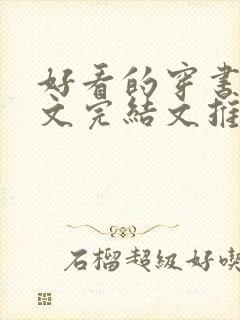 好看的穿書
文完結文推
石榴超級好喫